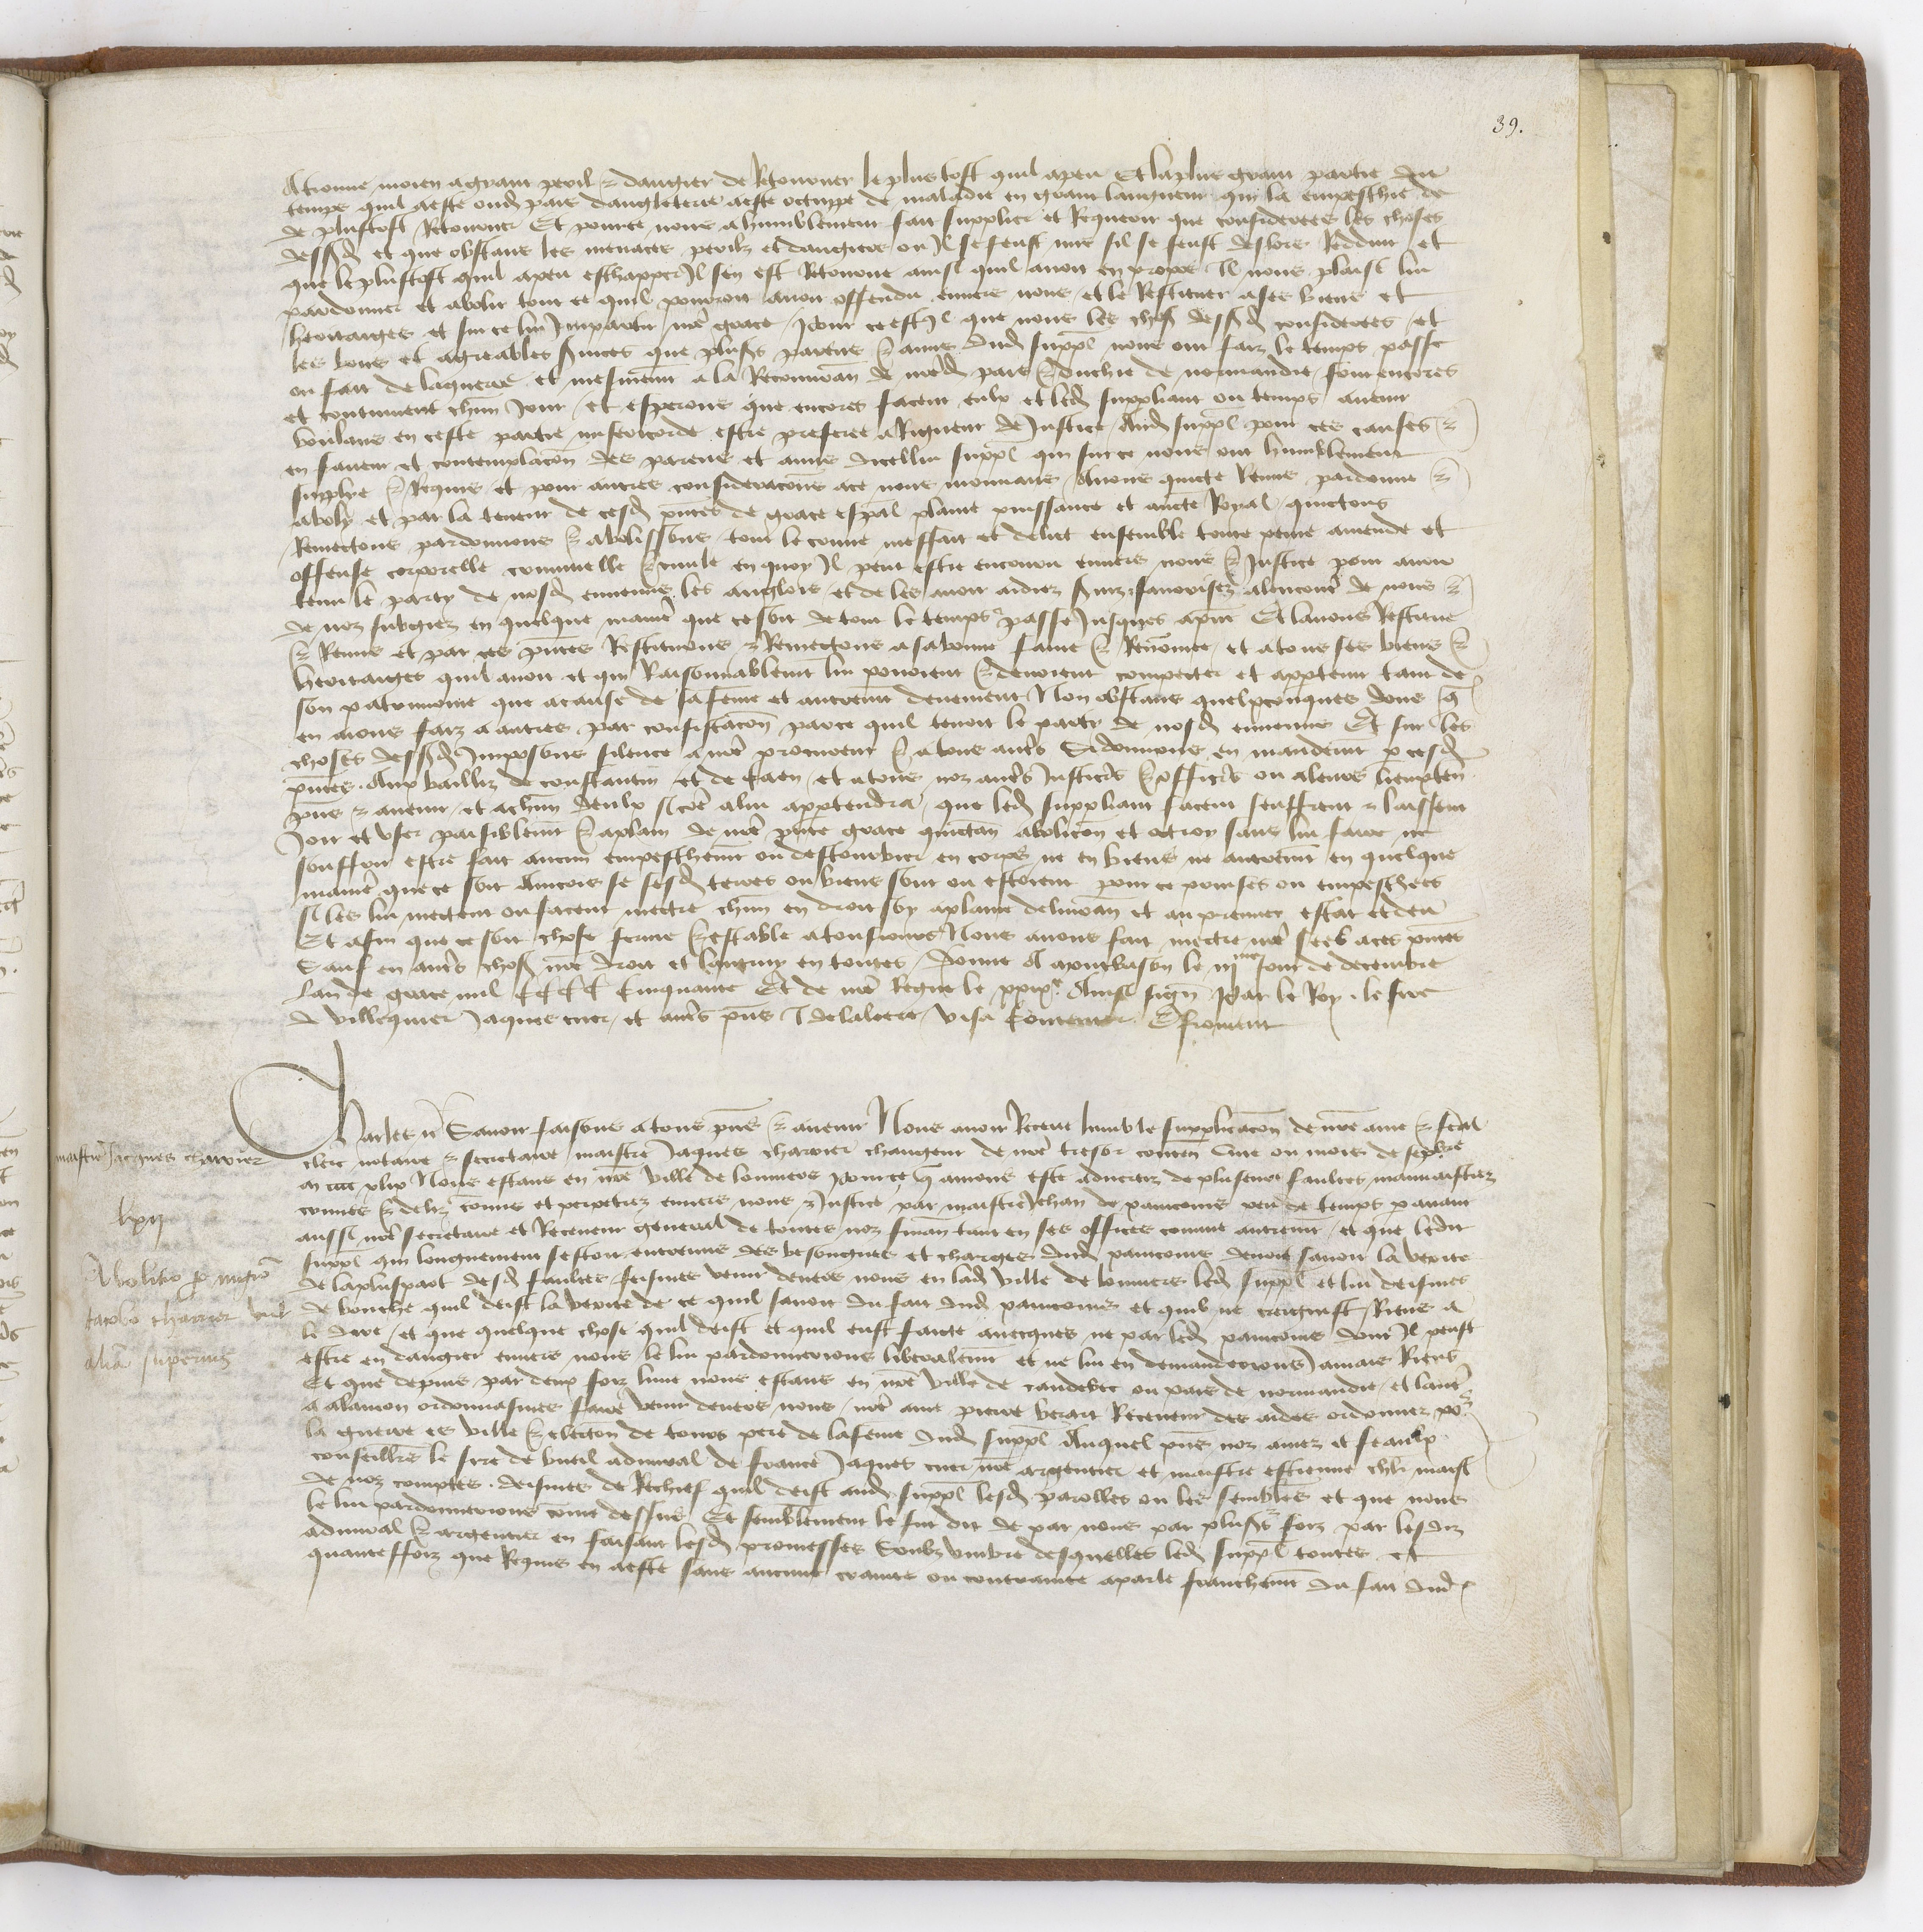 39.
A trouue moien a grant peril & dangier de Retourner le plus tost quil a peu Et la plus grant partie du
temps quil a esté oud. pais dangleterre a esté occuppé de maladie en grant langueur qui la empesche de
de plustost Retourner Et pource nous a humblement fait supplier et Requerir que considerees les choses
dessusd. et que obstans les menaces perilz et dangiers ou Il se feust mis sil se feust deslors Reddut et
que le plustost quil a peu eschapper Il sen est Retourné ainsi quil auoit en propos Il nous plaise lui
pardonner et abolir tout ce quil pourroit auoir offendu enuers nous et le Restituer a ses biens et
heritaiges et sur ce lui Impartir nre grace / Pour ce est Il que nous les choses dessusd. considerees et
les bons et agreables seruices que pluss parens & amis dud. suppl nous ont faiz le temps passé
ou fait de la guerre et mesmemt a la Recouurance de nred. pais & duchié de normandie / font encores
et continuent chun Jour / et esperons que encores facent eulx et led. suppliant ou temps auenir
voulans en ceste partie misericorde estre preferee a Rigueur de Justice / Aud. suppl pour ces causes &
en faueur et contemplacion des parens et amis dicellui suppl qui sur ce nous ont humblement
supplié & Requis / et pour autres consideracions a ce nous mouuans / Auons quicté Remis pardonné &
aboly et par la teneur de cesd. pntes de grace espal plaine puissance et aucté Royal / quictons
Remectons pardonnons & abolissons tout le crime meffait et delict ensemble toute peine amende et
offense corporelle criminelle & ciuile en quoy Il peut estre encouru enuers nous & Justice pour auoir
tenu le party de nosd. ennemis les anglois / et de les auoir aidiez seruiz fauorisez alencontre de nous &
de noz subgiez en quelque maniere que ce soit de tout le temps passé Jusques a pnt Et lauons Restitué
& Remis et par ces pntes Restituons & Remectons a sa bonne fame & Renommee / et a tous ses biens &
heritaiges quil auoit et qui Raisonnablemt lui pouoient & deuoient compecter et appartenir tant de
son patrimoine que a cause de sa feme et autrement deuement / Non obstans quelxconques dons que
en aions faiz a autres par confiscacion parce quil tenoit le party de nosd. ennemis Et sur les
choses dessusd. Imposons silence a nre procureur & a tous autres Si donnons en mandemt par cesd.
pntes. Aux bailliz de constantin et de Caen / et a tous noz autres Justiciers & officiers ou a leurs lieuxten.
pns & auenir / et a chun deulx si come a lui appartendra / que led. suppliant facent seuffrent & laissent
Joir et vser paisiblemt & a plain de nre pnte grace quictance abolicion et octroy sans lui faire ne
souffrir estre fait aucun empeschemt ou destourbier en corps ne en biens ne autremt en quelque
maniere que ce soit Aincois se sesd. terres ou biens sont ou estoient pour ce prinses ou empeschees
si les lui mectent ou facent mectre chun en droit soy a plaine deliurance et au premier estat et deu
Et afin que ce soit chose ferme & estable a tousiours Nous auons fait mectre nre seel a ces pntes
Sauf en autres choses nre droit et lautruy en toutes / Donné A montbason le iijme Jour de decembre
Lan de grace mil CCCC Cinquante Et de nre Regne le xxixe Ainsi signé Par le Roy. le sire
de villequier Jaques cuer / et autres pns J delaloere / visa Contentor. E froment
Charles &c Sauoir faisons a tous pns & auenir Nous auoir Receue lumble supplicacion de nre amé & feal
clerc notaire & secretaire maistre Jaques charrier changeur de nre tresor conten. Que ou mois de septbre
m cccc xlix Nous estans en nre ville de louuiers Pour ce que auions esté aduertiz de plusieurs faultes mauuaistiez
crimes & deliz comis et perpetrez enuers nous & Justice par maistre Jehan de xaincoins pour le temps parauant
aussi nre secretaire et Receueur general de toutes noz finances tant en ses offices comme autremt / et que ledit
suppl qui longuement sestoit entremis des besongnes et charges dud. xaincoins deuoit sauoir la verité
de la pluspart desd. faultes / feismes venir deuers nous en lad. ville de louuiers led. suppl et lui deismes
de bouche quil deist la verité de ce quil sauoit du fait dud. xaincoins et quil ne craignist Riens a
le dire / et que quelque chose quil deist et quil eust faicte auecques ne par led. xaincoins dont Il peust
estre en dangier enuers nous le lui pardonnerions liberalemt et ne lui en demanderions Jamais Riens
Et que depuis par deux foiz lune nous estans en nre ville de caudebec ou pais de normandie / et lautre
a alancon ordonnasmes faire venir deuers nous / nre amé pierre berart Receueur des aides ordonnez pour
la guerre es ville & eleccion de tours pere de la feme dud. suppl Auquel pns noz amez et feaulx
conseillrs le sire de bueil admiral de france Jaques cuer nre argentier et maistre estienne chlr maist
de noz comptes. deismes de Rechief quil deist aud. suppl lesd. parolles ou les semblables et que nous
le lui pardonnerions come dessus Et semblablement le fut dit de par nous par pluss foiz par lesdiz
admiral & argentier en faisant lesd. promesses Soubz vmbre desquelles led. suppl toutes et
quanteffoiz que Requis en a esté sans aucune crainte ou contrainte a parlé franchemt du fait dud.
maistre Jacques charrier
lxxij
Abolitio pro magistro
Jacobo charrier vide
alia superius